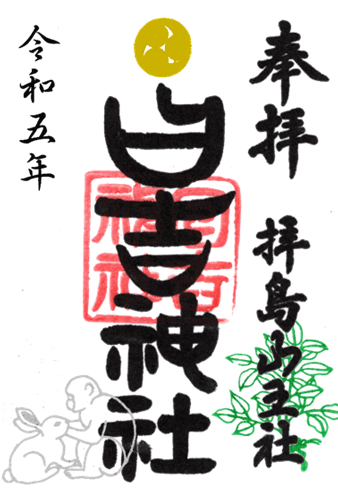 奉拝
拝島山王社
日吉神社
令和五年